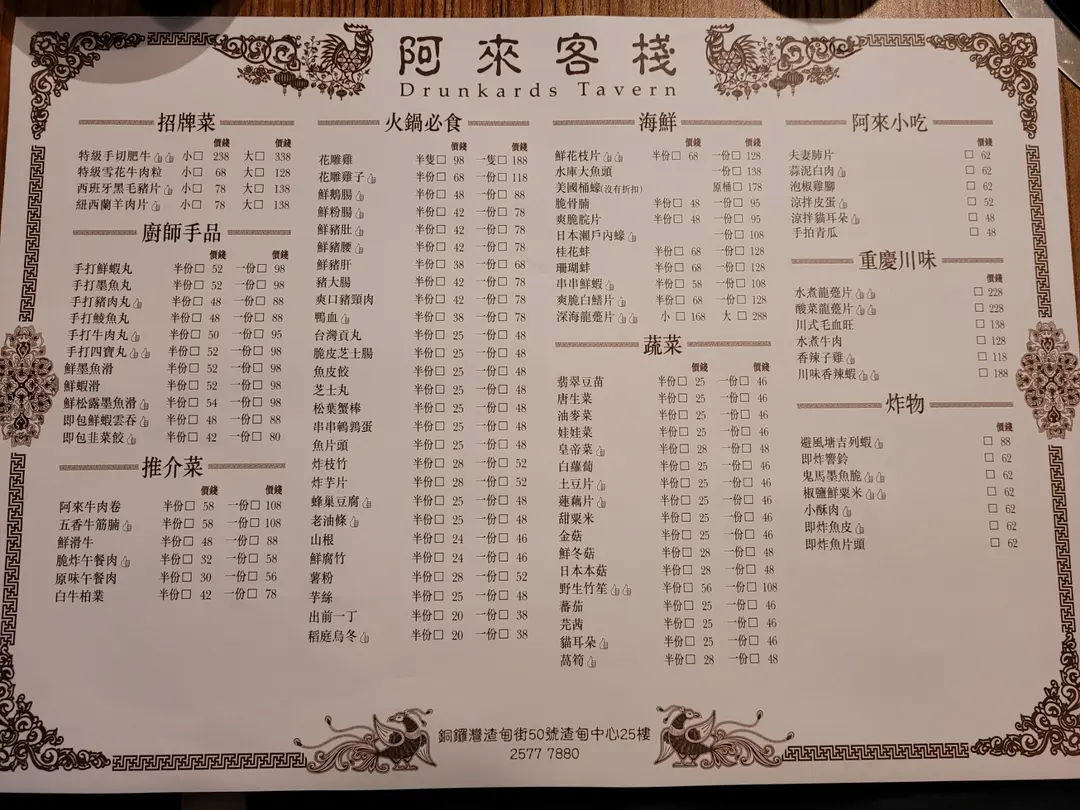 阿來客棧
Drunkards Tavern
招牌菜
價錢 價錢
特級手切肥牛 小□ 238 大□ 338
特級雪花牛肉粒 小□ 68 大□ 128
西班牙黑毛豬片 小□ 78 大□ 138
紐西蘭羊肉片 小□ 78 大□ 138
廚師手品
價錢 價錢
手打鮮蝦丸 半份□ 52 一份□ 98
手打墨魚丸 半份□ 52 一份□ 98
手打豬肉丸 半份□ 48 一份□ 88
手打鯪魚丸 半份□ 48 一份□ 88
手打牛肉丸 半份□ 50 一份□ 95
手打四寶丸 半份□ 52 一份□ 98
鮮墨魚滑 半份□ 52 一份□ 98
鮮蝦滑 半份□ 52 一份□ 98
鮮松露墨魚滑 半份□ 54 一份□ 98
即包鮮蝦雲吞 半份□ 48 一份□ 88
即包韭菜餃 半份□ 42 一份□ 80
推介菜
價錢 價錢
阿來牛肉卷 半份□ 58 一份□ 108
五香牛筋腩 半份□ 58 一份□ 108
鮮滑牛 半份□ 48 一份□ 88
脆炸午餐肉 半份□ 32 一份□ 58
原味午餐肉 半份□ 30 一份□ 56
白牛柏葉 半份□ 42 一份□ 78
火鍋必食
價錢 價錢
花雕雞 半隻□ 98 一隻□ 188
花雕雞子 半份□ 68 一份□ 118
鮮鵝腸 半份□ 48 一份□ 88
鮮粉腸 半份□ 42 一份□ 78
鮮豬肚 半份□ 42 一份□ 78
鮮豬腰 半份□ 42 一份□ 78
鮮豬肝 半份□ 38 一份□ 68
豬大腸 半份□ 42 一份□ 78
爽口豬頸肉 半份□ 42 一份□ 78
鴨血 半份□ 38 一份□ 78
台灣貢丸 半份□ 25 一份□ 48
脆皮芝士腸 半份□ 25 一份□ 48
魚皮餃 半份□ 25 一份□ 48
芝士丸 半份□ 25 一份□ 48
松葉蟹棒 半份□ 25 一份□ 48
串串鵪鶉蛋 半份□ 25 一份□ 48
魚片頭 半份□ 25 一份□ 48
炸枝竹 半份□ 28 一份□ 52
炸芋片 半份□ 28 一份□ 52
蜂巢豆腐 半份□ 25 一份□ 48
老油條 半份□ 25 一份□ 48
山根 半份□ 24 一份□ 46
鮮腐竹 半份□ 24 一份□ 46
薯粉 半份□ 28 一份□ 52
芋絲 半份□ 25 一份□ 48
出前一丁 半份□ 20 一份□ 38
稻庭烏冬 半份□ 20 一份□ 38
海鮮
價錢 價錢
鮮花枝片 半份□ 68 一份□ 128
水庫大魚頭 一份□ 138
美國桶蠔(沒有折扣) 原桶□ 178
脆骨腩 半份□ 48 一份□ 95
爽脆脘片 半份□ 48 一份□ 95
日本瀨戶內蠔 一份□ 108
桂花蚌 半份□ 68 一份□ 128
珊瑚蚌 半份□ 68 一份□ 128
串串鮮蝦 半份□ 58 一份□ 108
爽脆白鱔片 半份□ 68 一份□ 128
深海龍躉片 小□ 168 大□ 288
蔬菜
價錢 價錢
翡翠豆苗 半份□ 25 一份□ 46
唐生菜 半份□ 25 一份□ 46
油麥菜 半份□ 25 一份□ 46
娃娃菜 半份□ 25 一份□ 46
皇帝菜 半份□ 25 一份□ 46
白蘿蔔 半份□ 25 一份□ 46
土豆片 半份□ 25 一份□ 46
蓮藕片 半份□ 25 一份□ 46
甜粟米 半份□ 25 一份□ 46
金菇 半份□ 25 一份□ 46
鮮冬菇 半份□ 28 一份□ 48
日本本菇 半份□ 28 一份□ 48
野生竹笙 半份□ 56 一份□ 108
蕃茄 半份□ 25 一份□ 46
芫茜 半份□ 25 一份□ 46
貓耳朵 半份□ 25 一份□ 46
萵筍 半份□ 28 一份□ 48
阿來小吃
價錢
夫妻肺片 □ 62
蒜泥白肉 □ 62
泡椒雞腳 □ 62
涼拌皮蛋 □ 52
涼拌貓耳朵 □ 48
手拍青瓜 □ 48
重慶川味
價錢
水煮龍躉片 □ 228
酸菜龍躉片 □ 228
川式毛血旺 □ 138
水煮牛肉 □ 128
香辣子雞 □ 118
川味香辣蝦 □ 188
炸物
價錢
避風塘吉列蝦 □ 88
即炸響鈴 □ 62
鬼馬墨魚脆 □ 62
椒鹽鮮粟米 □ 62
小酥肉 □ 62
即炸魚皮 □ 62
即炸魚片頭 □ 62
銅鑼灣渣甸街50號渣甸中心25樓
2577 7880